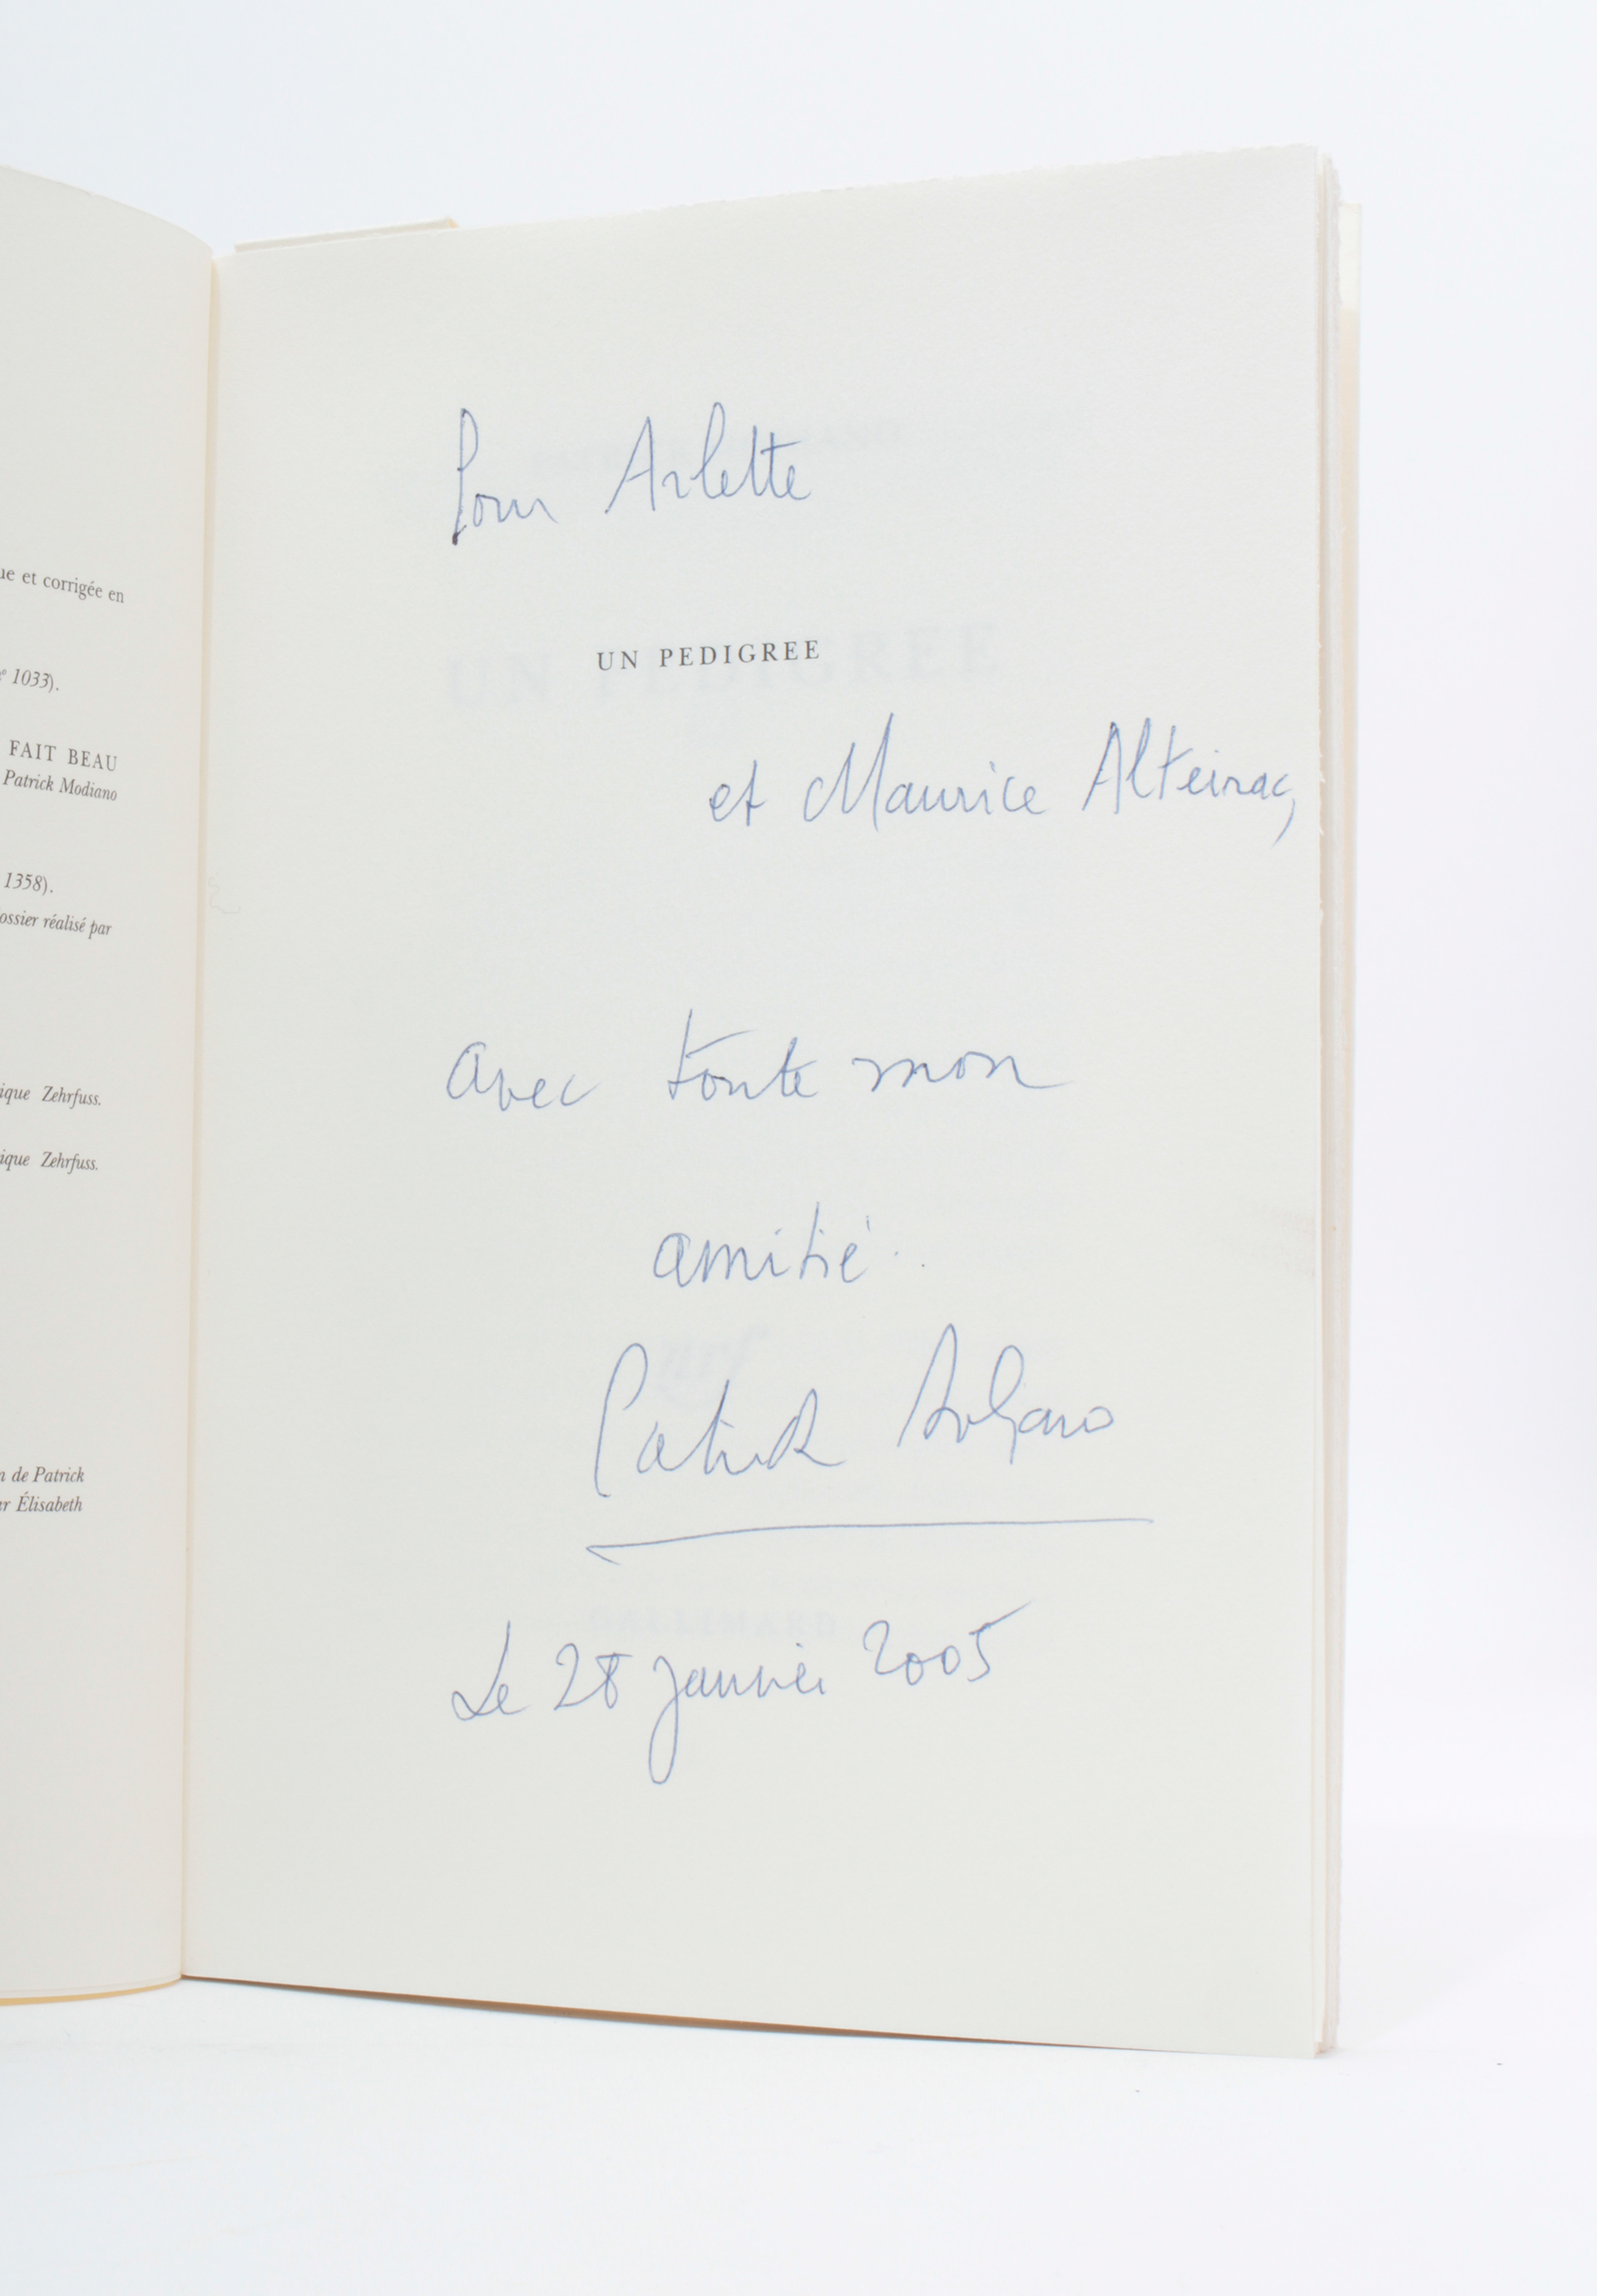 ue et corrigée en
nº 1033).
FAIT BEAU
Patrick Modiano
1358).
ossier réalisé par
ique Zehrfuss.
ique Zehrfuss.
n de Patrick
ar Élisabeth
Pour Arlette
UN PEDIGREE
et Maurice Alteirac,
avec toute mon
amitié.
Patrick Modiano
Le 28 janvier 2005
PATRICK MODIANO
UN PEDIGREE
nrf
GALLIMARD